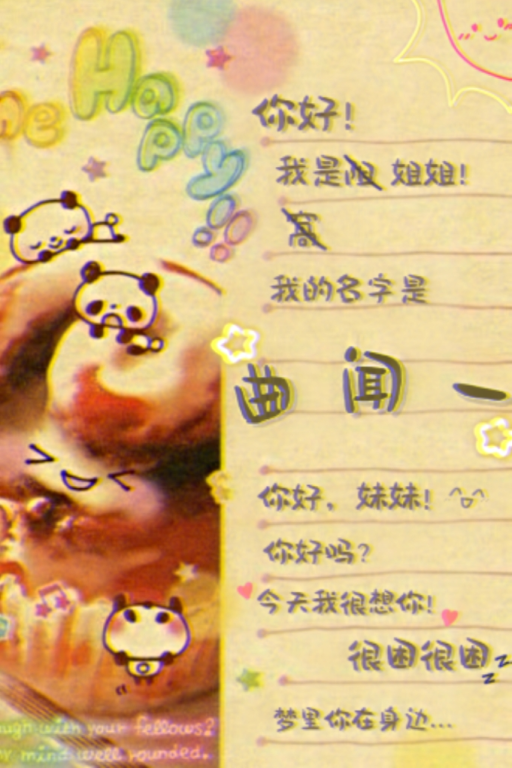 me Happy!!
你好！
我是 姐姐！
我的名字是
曲 闻 一
你好，妹妹！
你好吗？
今天我很想你！
很困很困zz
梦里你在身边...
ugh with your fellows?
mind well rounded.